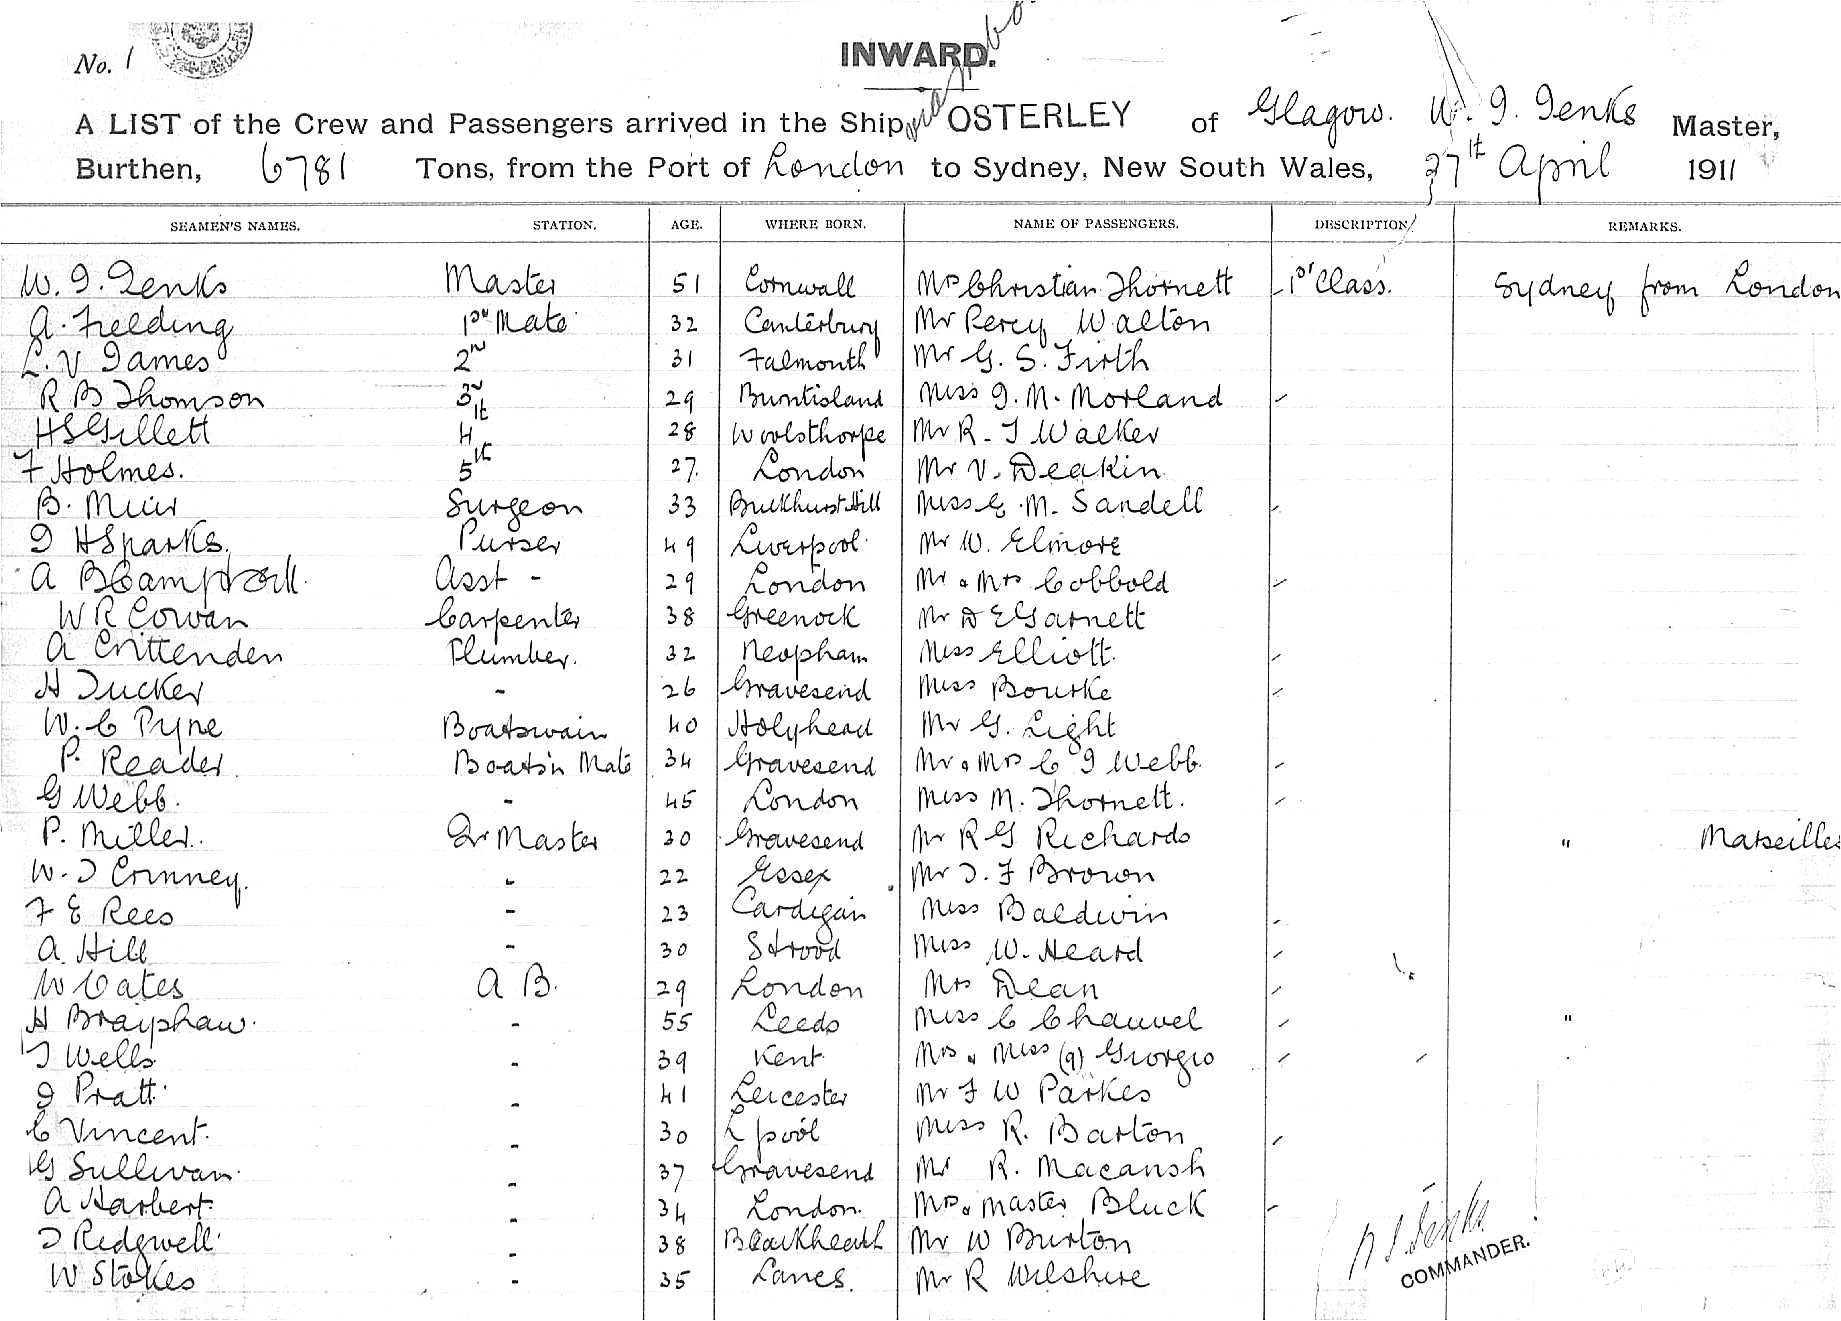 No. 1
INWARD.
A LIST of the Crew and Passengers arrived in the Ship OSTERLEY of Glagow. W. J. Jenks Master,
Burthen, 6781 Tons, from the Port of London to Sydney, New South Wales, 27th April 1911
SEAMEN'S NAMES. STATION. AGE. WHERE BORN. NAME OF PASSENGERS. DESCRIPTION REMARKS.
W. J. Jenks Master 51 Cornwall Mrs Christian Thornett 1st Class. Sydney from London
A. Fielding 1st Mate 32 Canterbury Mr Percy Walton
L. V James 2nd 31 Falmouth Mr G. S. Firth
R B Thomson 3rd 29 Burntisland Miss J. M. Morland
H S Gillett 4th 28 Woolsthorpe Mr R. J Walker
F Holmes. 5th 27. London Mr V. Deakin
B. Muir Surgeon 33 Buckhurst Hill Miss E. M. Sandell
J H Sparks. Purser 49 Liverpool Mr W. Elmore
A B Asst - 29 London Mr & Mrs Cobbold
W R Cowan Carpenter 38 Greenock Mr D E Garnett
A Crittenden Plumber. 32 Meopham Miss Elliott.
H Tucker - 26 Gravesend Miss Bourke
W. C Pyne Boatswain 40 Holyhead Mr G. Light
P. Reader Boatsn Mate 34 Gravesend Mr & Mrs C J Webb.
G Webb. - 45 London Miss M. Thornett.
P. Miller. Qr Master 30 Gravesend Mr R G Richards " Marseilles
W. J - 22 Essex Mr J. F Brown
F E Rees - 23 Cardigan Miss Baldwin
A. Hill - 30 Strood Miss W. Heard
W Cates A B. 29 London Mrs Dean
H Brayshaw. - 55 Leeds Miss C Chauvel "
J Wells - 39 Kent Mrs & Miss (9) Giorgio
J Pratt - 41 Leicester Mr F W Parkes
C Vincent. - 30 L'pool Miss R. Barton
G Sullivan - 37 Gravesend Mr R. Macansh
A Harbert - 34 London. Mrs & Master Bluck
J Ridgwell - 38 Blackheath Mr W Burton
W Stokes - 35 Lancs. Mr R Wilshire
W J Jenks
COMMANDER.